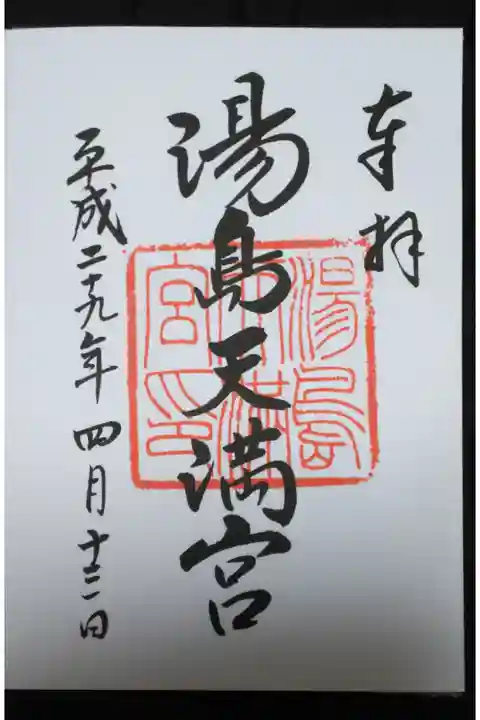 奉拝
湯島天満宮
湯島天満宮印
平成二十九年四月十三日